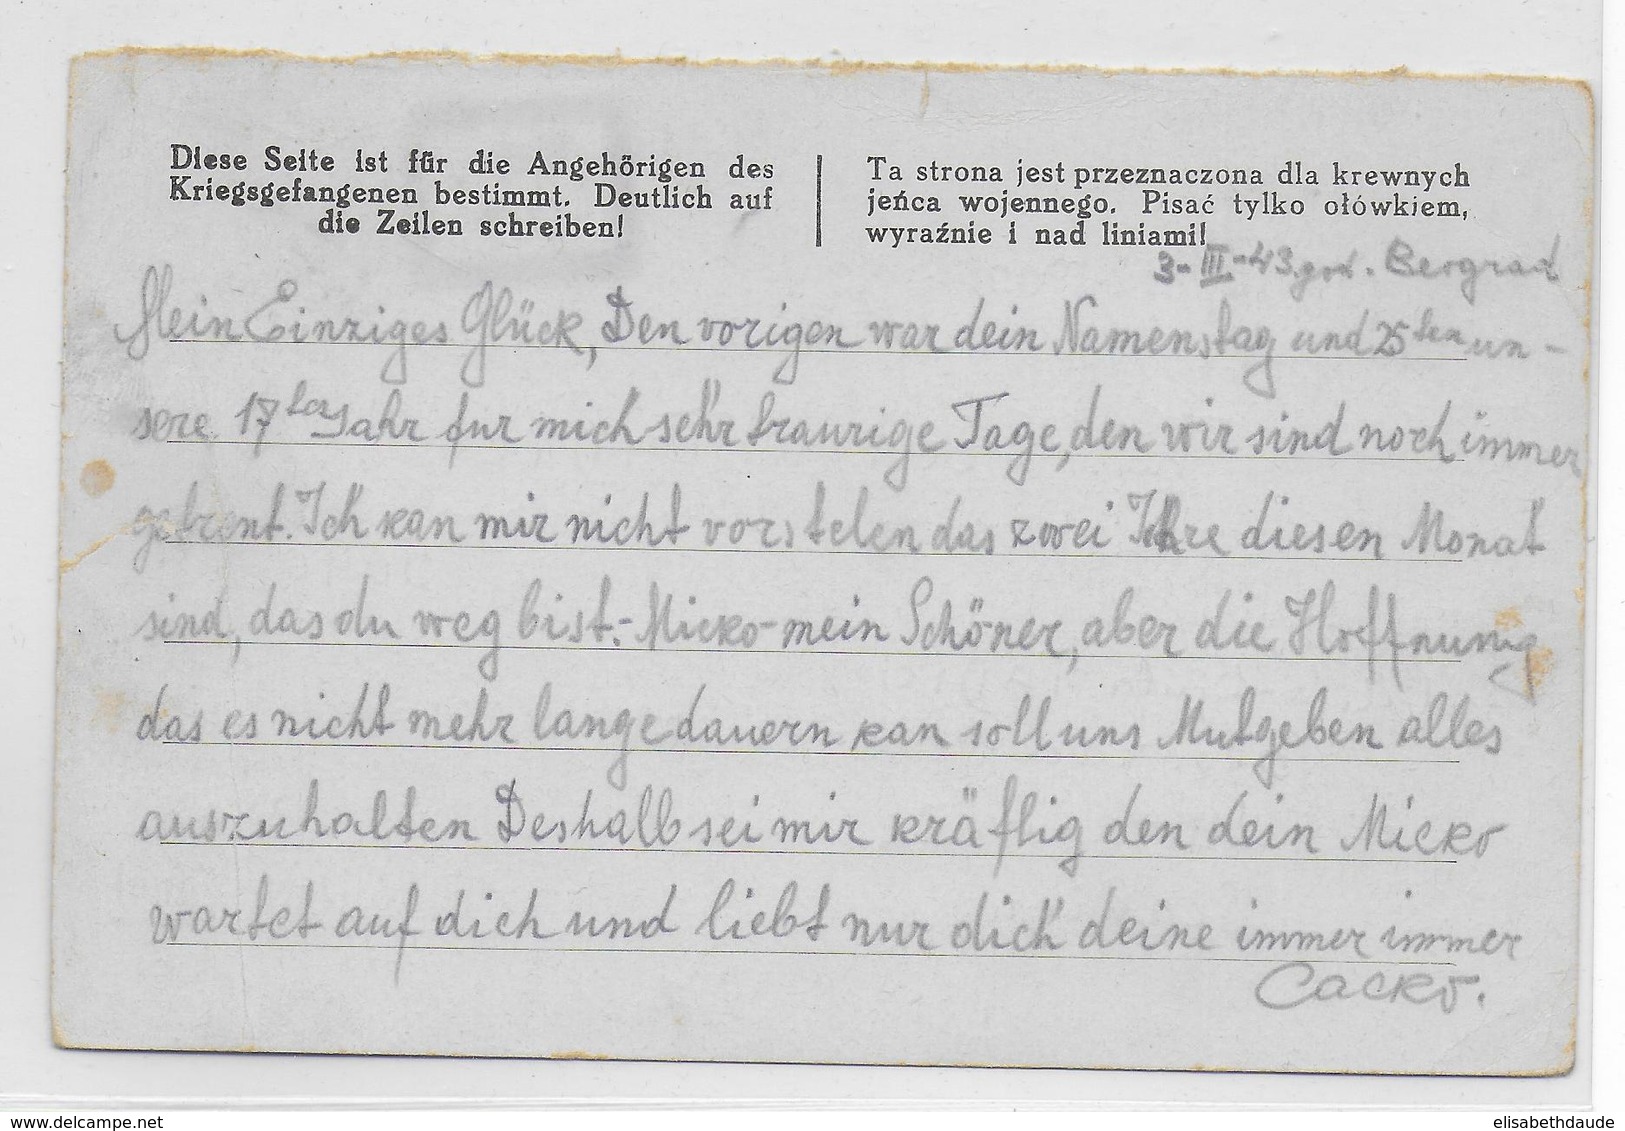 Diese Seite ist für die Angehörigen des
Kriegsgefangenen bestimmt. Deutlich auf
die Zeilen schreiben!
Ta strona jest przeznaczona dla krewnych
jeńca wojennego. Pisać tylko ołówkiem,
wyraźnie i nad liniami!
3-III-43.god. Beograd
Mein Einziges Glück, Den vorigen war dein Namenstag und 25ten un-
sere 17ter Jahr fur mich sehr traurige Tage, den wir sind noch immer
getrent. Ich kan mir nicht vorstelen das zwei Jahre diesen Monat
sind, das du weg bist.- Micko- mein Schöner, aber die Hoffnung
das es nicht mehr lange dauern kan soll uns Mut geben alles
auszuhalten Deshalb sei mir kräftig den dein Micko
wartet auf dich und liebt nur dich deine immer immer
Cacko.
delcampe.net
elisabethdaude